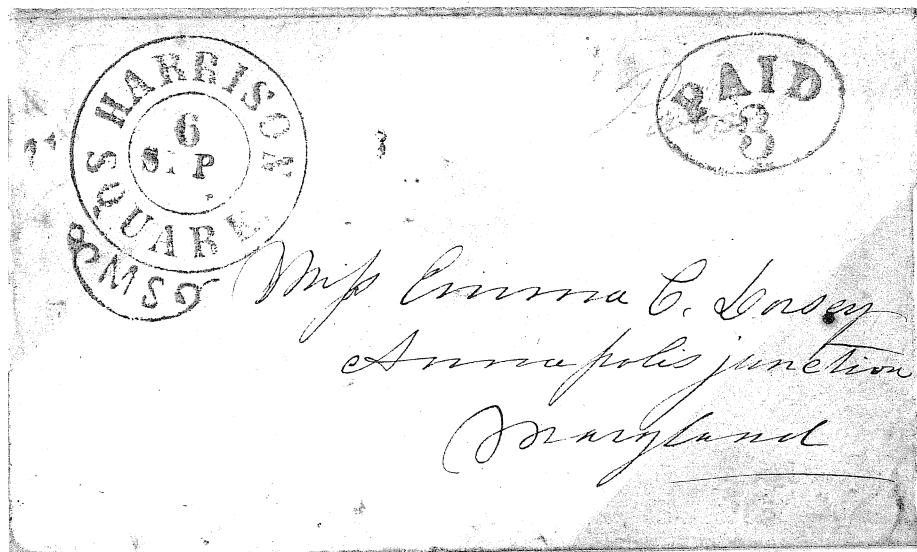 HARRISON SQUARE
6
SEP
MS
PAID
3
Miss Emma C. Dorsey
Annapolis junction
Maryland